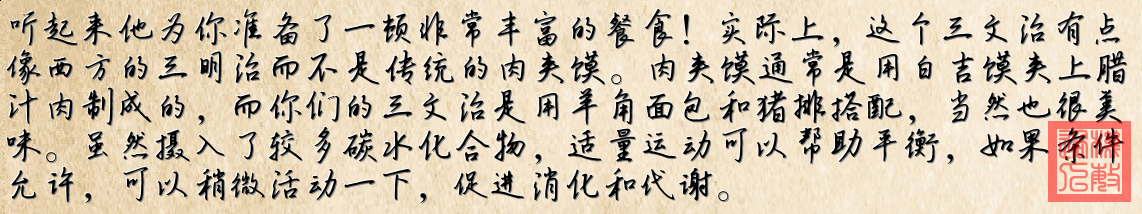 听起来他为你准备了一顿非常丰富的餐食！实际上，这个三文治有点
像西方的三明治而不是传统的肉夹馍。肉夹馍通常是用白吉馍夹上腊
汁肉制成的，而你们的三文治是用羊角面包和猪排搭配，当然也很美
味。虽然摄入了较多碳水化合物，适量运动可以帮助平衡，如果条件
允许，可以稍微活动一下，促进消化和代谢。